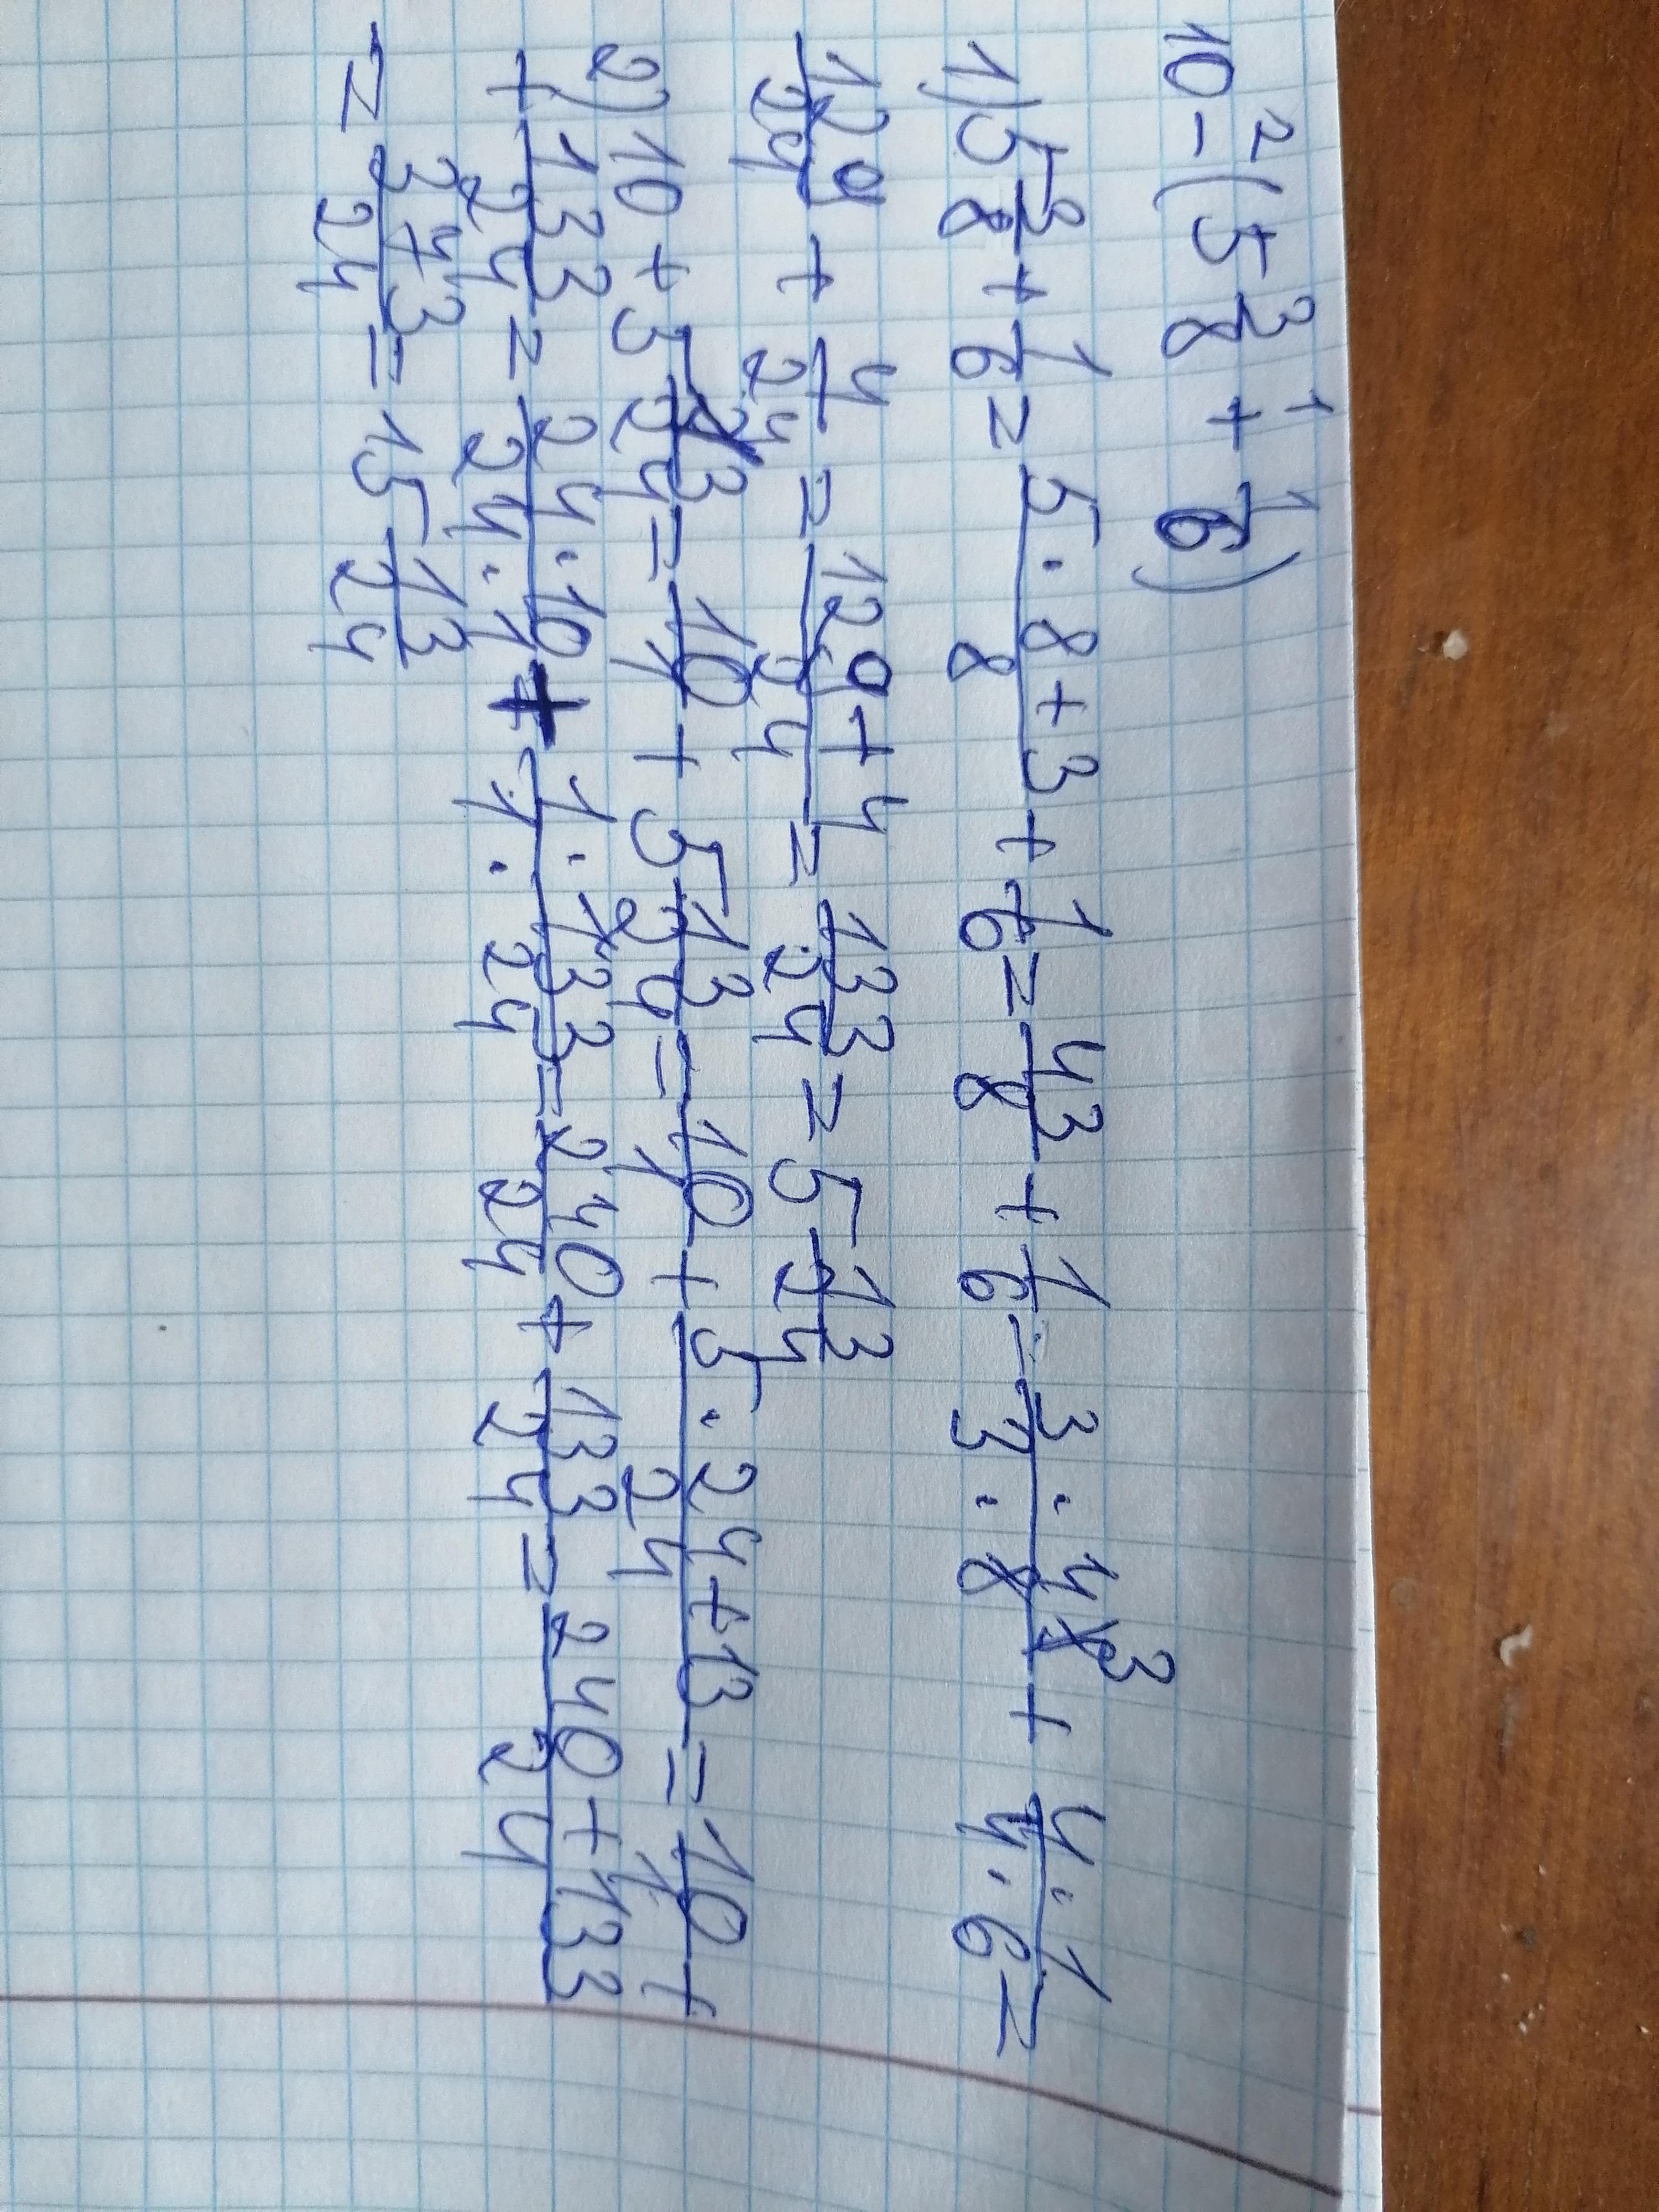 2 1
10-(5 3/8 + 1/6)
1) 5 3/8 + 1/6 = (5·8+3)/8 + 1/6 = 43/8 + 1/6 = (3·43)/(3·8) + (4·1)/(4·6) =
129/24 + 4/24 = (129+4)/24 = 133/24 = 5 13/24
2) 10 + 5 13/24 = 10/1 + 5 13/24 = 10/1 + (5·24+13)/24 = 10/1 +
+ 133/24 = (24·10)/(24·1) + (1·133)/(1·24) = 240/24 + 133/24 = (240+133)/24
= 373/24 = 15 13/24